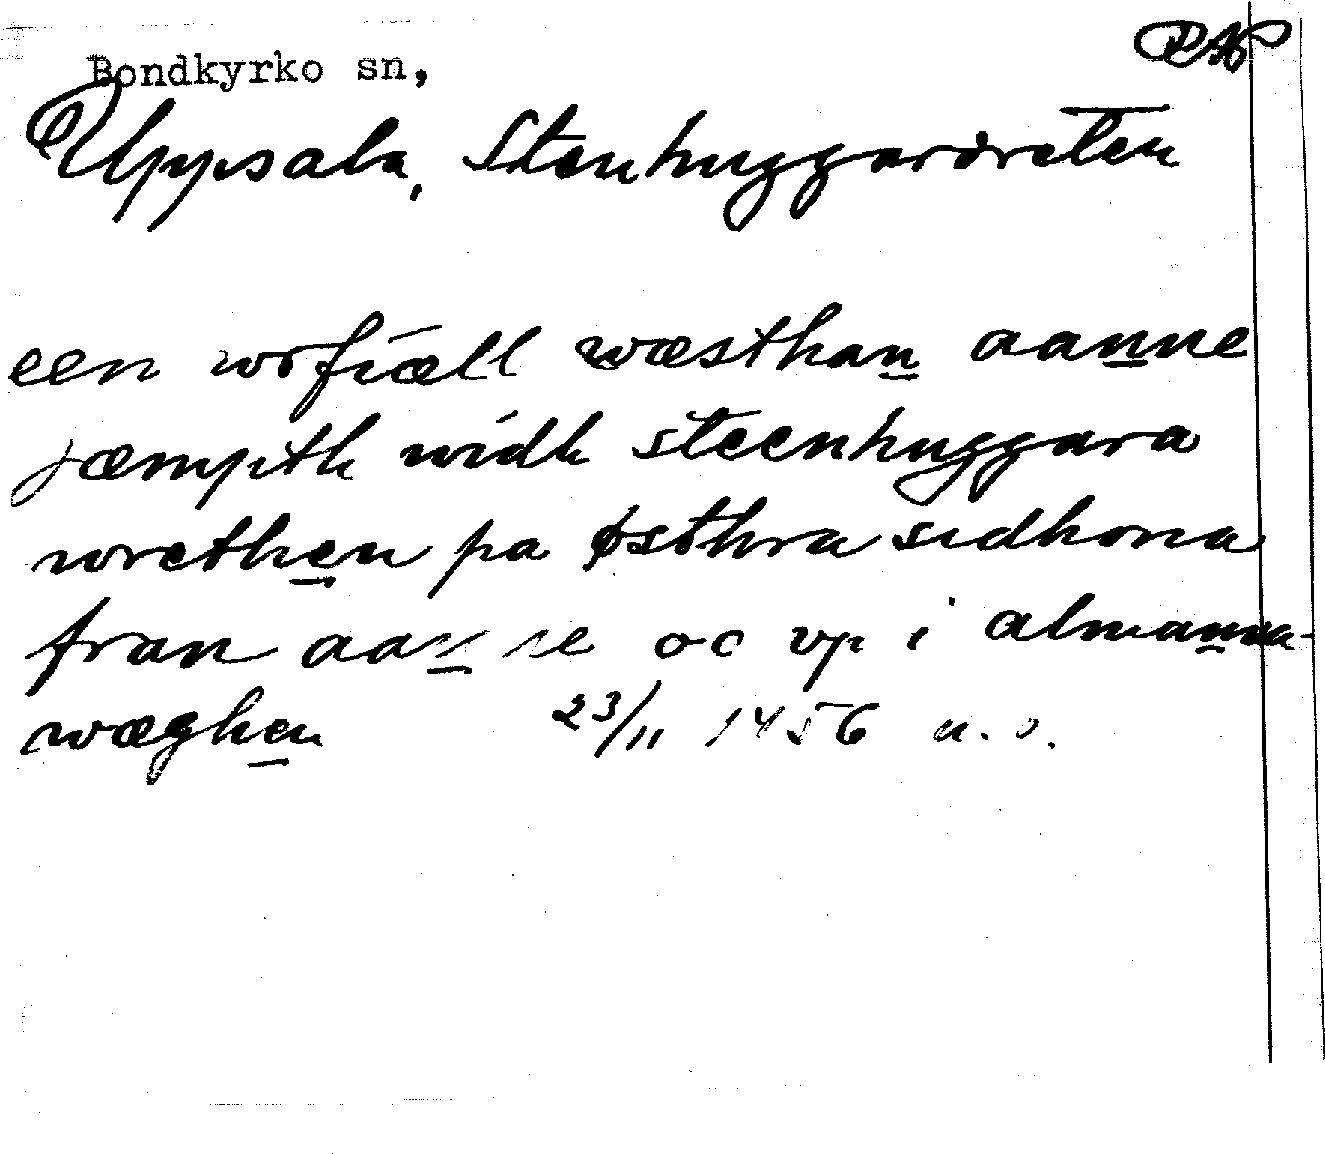 Bondkyrko sn,
Uppsala, Stenhuggarvreten
een worfiæll wæsthan aanne
jæmpth widh steenhuggara
wrethen pa østhra sidhona
fran aanne oc vp i almanna-
wæghen 23/11 1456 u.o.